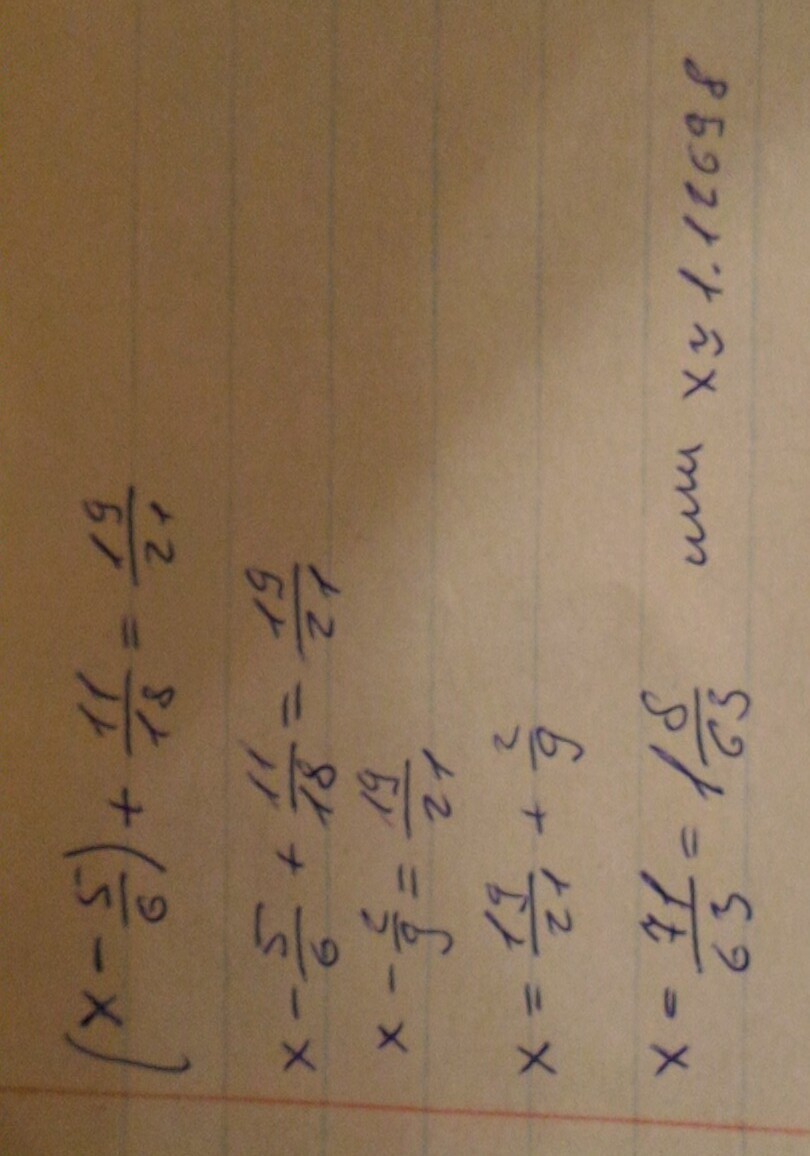 (x - 5/6) + 11/18 = 19/21
x - 5/6 + 11/18 = 19/21
x - 2/9 = 19/21
x = 19/21 + 2/9
x = 71/63 = 1 8/63 или x ≈ 1.12698